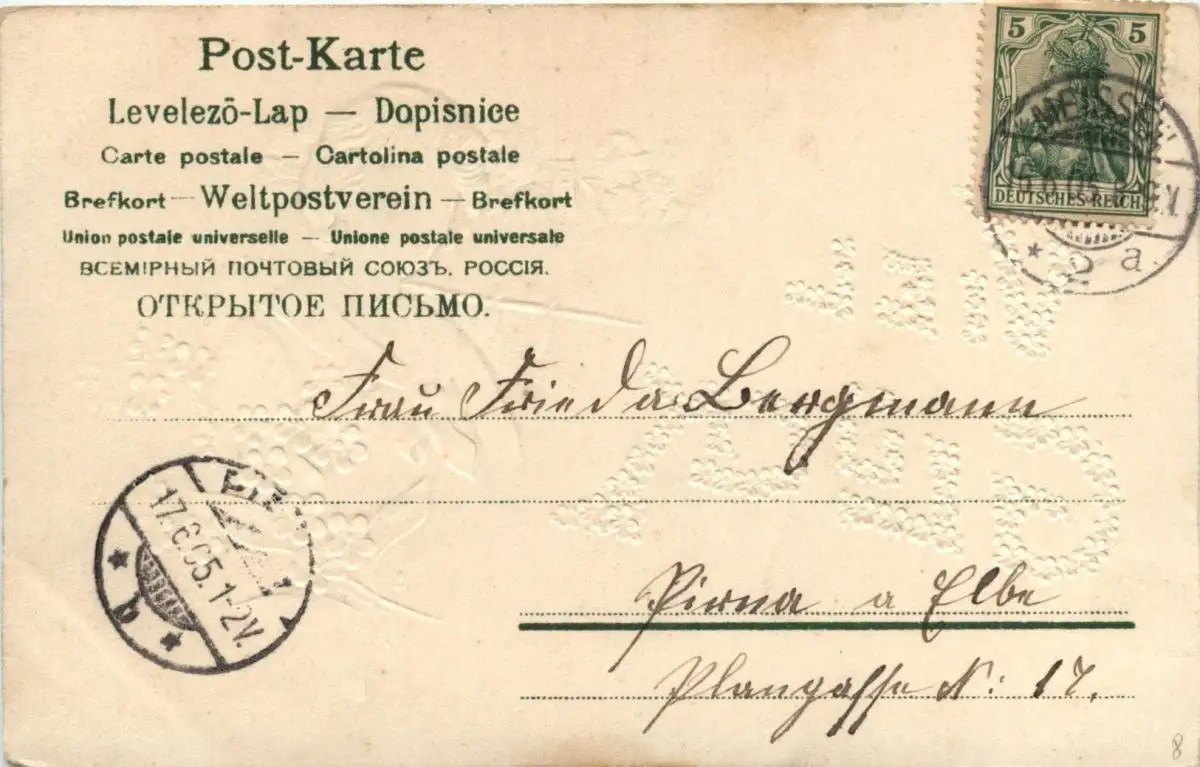 Post-Karte
Levelezõ-Lap — Dopisnice
Carte postale — Cartolina postale
Brefkort — Weltpostverein — Brefkort
Union postale universelle — Unione postale universale
ВСЕМІРНЫЙ ПОЧТОВЫЙ СОЮЗЪ. РОССІЯ.
ОТКРЫТОЕ ПИСЬМО.
5 5
DEUTSCHES REICH
MEISSEN
* 2 a.
Frau Frieda Bergmann
17.6.05. 1-2V.
* b *
Pirna a Elbe
Plangasse N: 17.
8